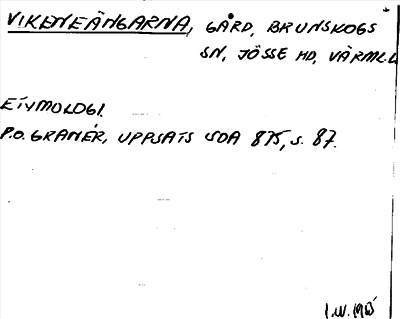 VIKENEÄNGARNA, GÅRD, BRUNSKOGS
SN, JÖSSE HD, VÄRML.
ETYMOLOGI.
P.O. GRANÉR, UPPSATS SOA 875, S. 87.
I.W.